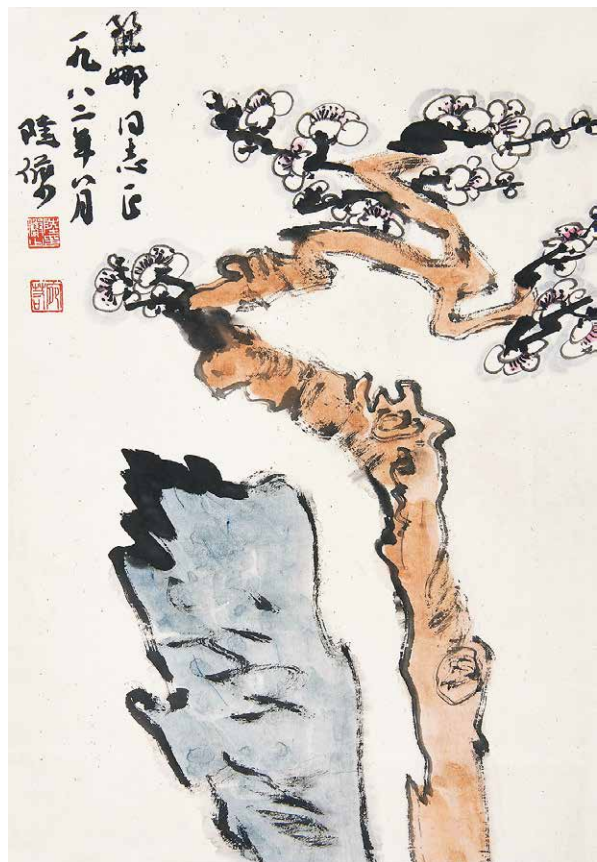 娜同志正
一九八二年八月
陸儼少